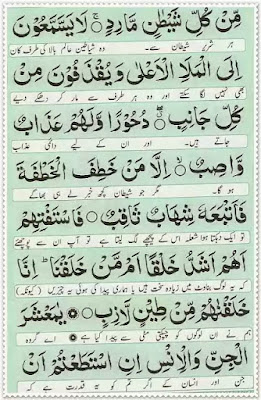 مِّنۡ كُلِّ شَيۡطٰنٍ مَّارِدٍ ۚ لَا يَسَّمَّعُوۡنَ
ہر شریر شیطان سے۔ وہ شیاطین عالم بالا کی طرف کان
اِلَى الۡمَلَاِ الۡاَعۡلٰى وَيُقۡذَفُوۡنَ مِنۡ
بھی نہیں لگا سکتے اور وہ ہر طرف سے مار کر دھکے دیے
كُلِّ جَانِبٍ ۖ دُحُوۡرًا وَّلَهُمۡ عَذَابٌ
جاتے ہیں۔ اور ان کے لیے دائمی عذاب
وَّاصِبٌ ۙ اِلَّا مَنۡ خَطِفَ الۡخَطۡفَةَ
ہو گا۔ مگر جو شیطان کچھ خبر لے ہی بھاگے
فَاَتۡبَعَهٗ شِهَابٌ ثَاقِبٌ ۚ فَاسۡتَفۡتِهِمۡ
تو ایک دہکتا ہوا شعلہ اس کے پیچھے لگ لیتا ہے تو آپ ان سے پوچھئے
اَهُمۡ اَشَدُّ خَلۡقًا اَمۡ مَّنۡ خَلَقۡنَا ؕ اِنَّا
کہ یہ لوگ بناوٹ میں زیادہ سخت ہیں یا ہماری پیدا کی ہوئی یہ چیزیں (کیونکہ)
خَلَقۡنٰهُمۡ مِّنۡ طِيۡنٍ لَّازِبٍ يٰمَعۡشَرَ
ہم نے ان لوگوں کو چپکتی مٹی سے پیدا کیا ہے اے گروہ
الۡجِنِّ وَالۡاِنۡسِ اِنِ اسۡتَطَعۡتُمۡ اَنۡ
جن اور انسان کے اگر تم کو یہ قدرت ہے کہ